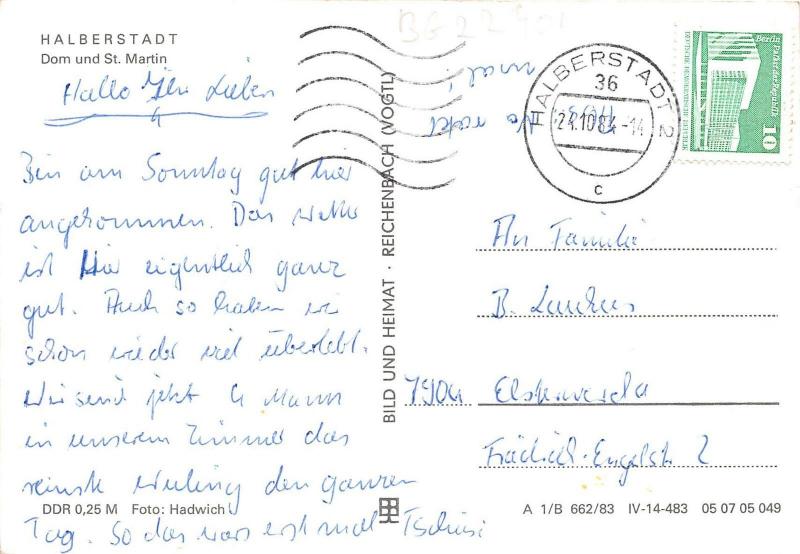 HALBERSTADT
Dom und St. Martin
Hallo Ihr Lieben
Bin am Sonntag gut hier
angekommen. Das Wetter
ist hier eigentlich ganz
gut. Auch so haben wir
schon wieder viel überlebt.
Wir sind jetzt 4 Mann
in unserem Zimmer das
reinste den ganzen
Tag. So das wars erst mal Tschüsi
DDR 0,25 M Foto: Hadwich
BILD UND HEIMAT · REICHENBACH (VOGTL)
BG 22 401
HALBERSTADT 2
36
24.10.84-14
c
Berlin Palast der Republik
DEUTSCHE DEMOKRATISCHE REPUBLIK
10
An Familie
B.
7904 Elsterwerda
Friedrich-Engelsstr 2
A 1/B 662/83 IV-14-483 05 07 05 049